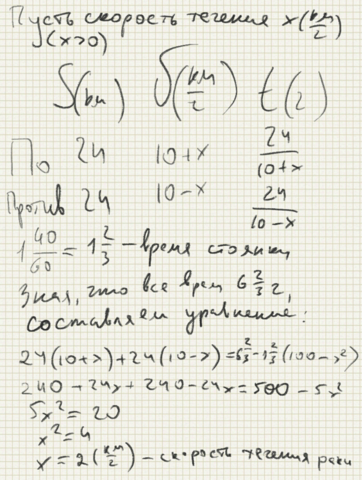 Пусть скорость течения x (км/г)
(x>0)
S(км) V(км/г) t(г)
По 24 10+x 24/(10+x)
Против 24 10-x 24/(10-x)
1 40/60 = 1 2/3 - время стоянки
Зная, что все врем 6 2/3 г,
составляем уравнение:
24(10+x)+24(10-x)=6 2/3-1 2/3(100-x²)
240+24x+240-24x=500-5x²
5x²=20
x²=4
x=2(км/г) - скорость течения реки